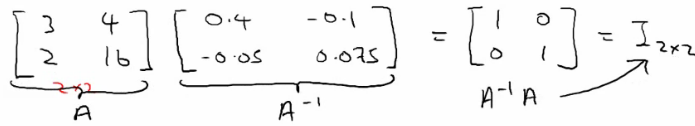 [3 4
2 16] [0.4 -0.1
-0.05 0.075] = [1 0
0 1] = I2×2
2×2
A A⁻¹ A⁻¹A